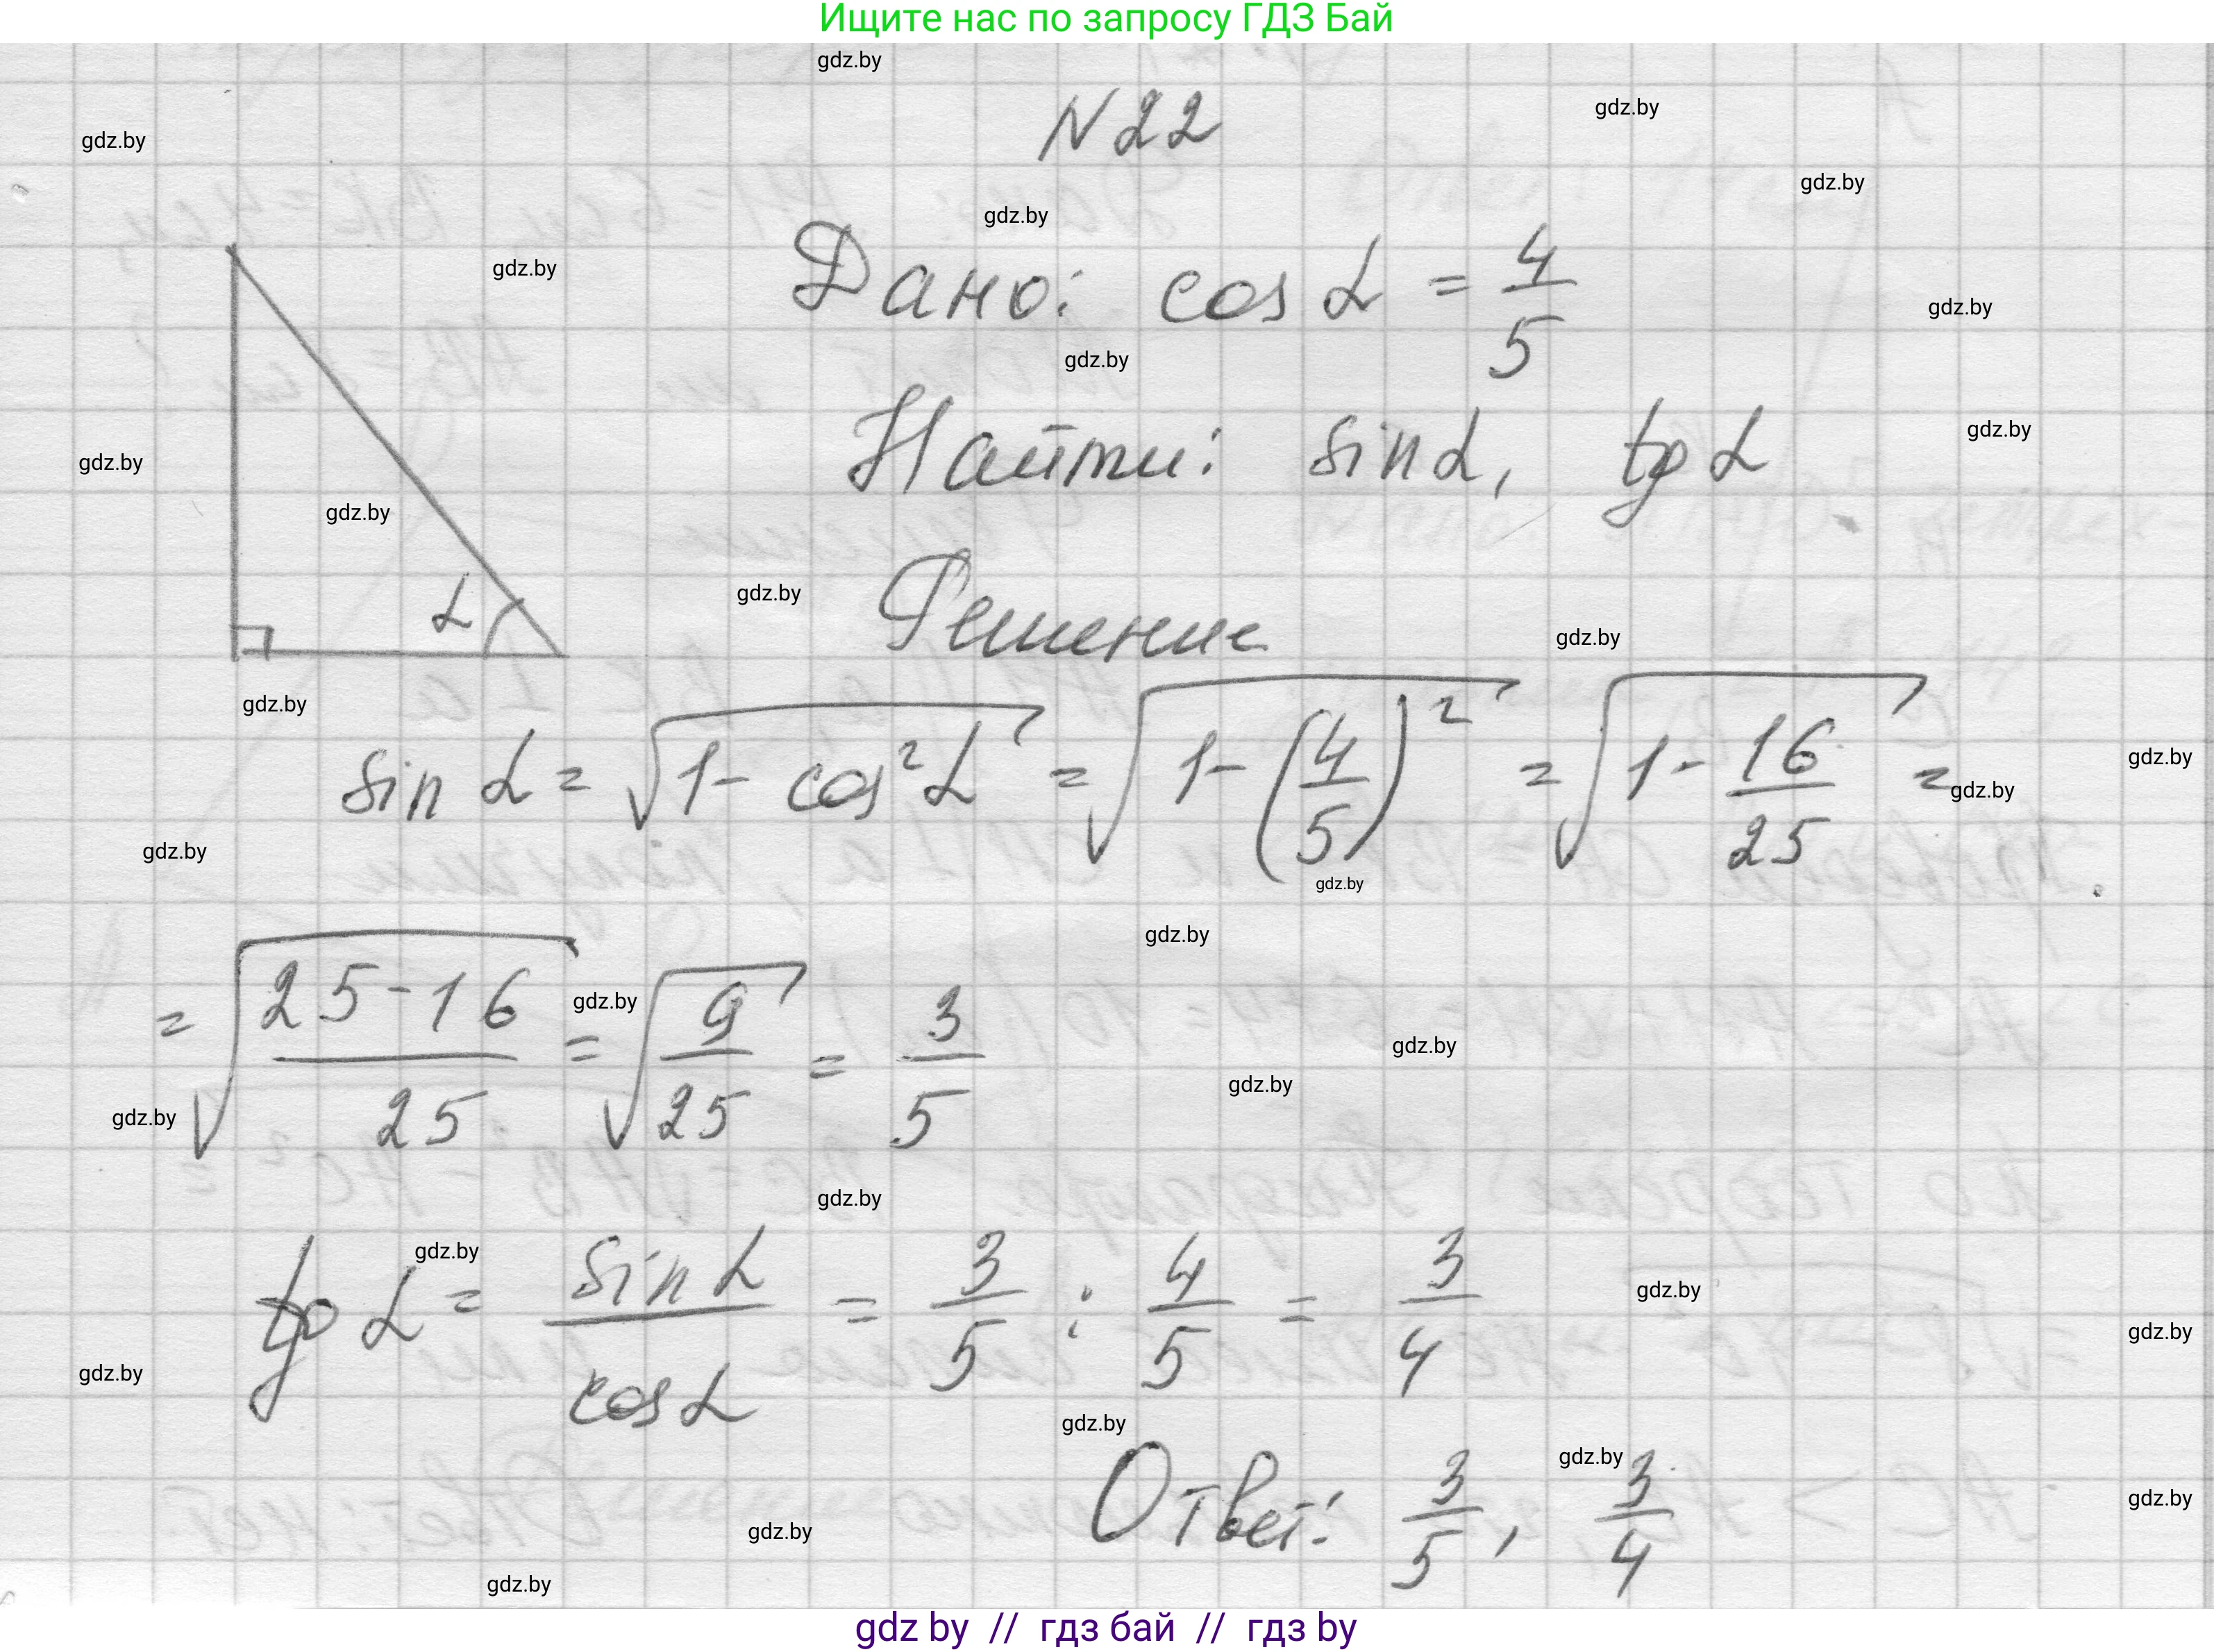 Ищите нас по запросу ГДЗ Бай
gdz.by
N22
Дано: cos α = 4/5
Найти: sin α, tg α
α
Решение
sin α = √(1 - cos² α) = √(1 - (4/5)²) = √(1 - 16/25) =
= √((25-16)/25) = √(9/25) = 3/5
tg α = sin α / cos α = 3/5 : 4/5 = 3/4
Ответ: 3/5, 3/4
gdz by // гдз бай // гдз by